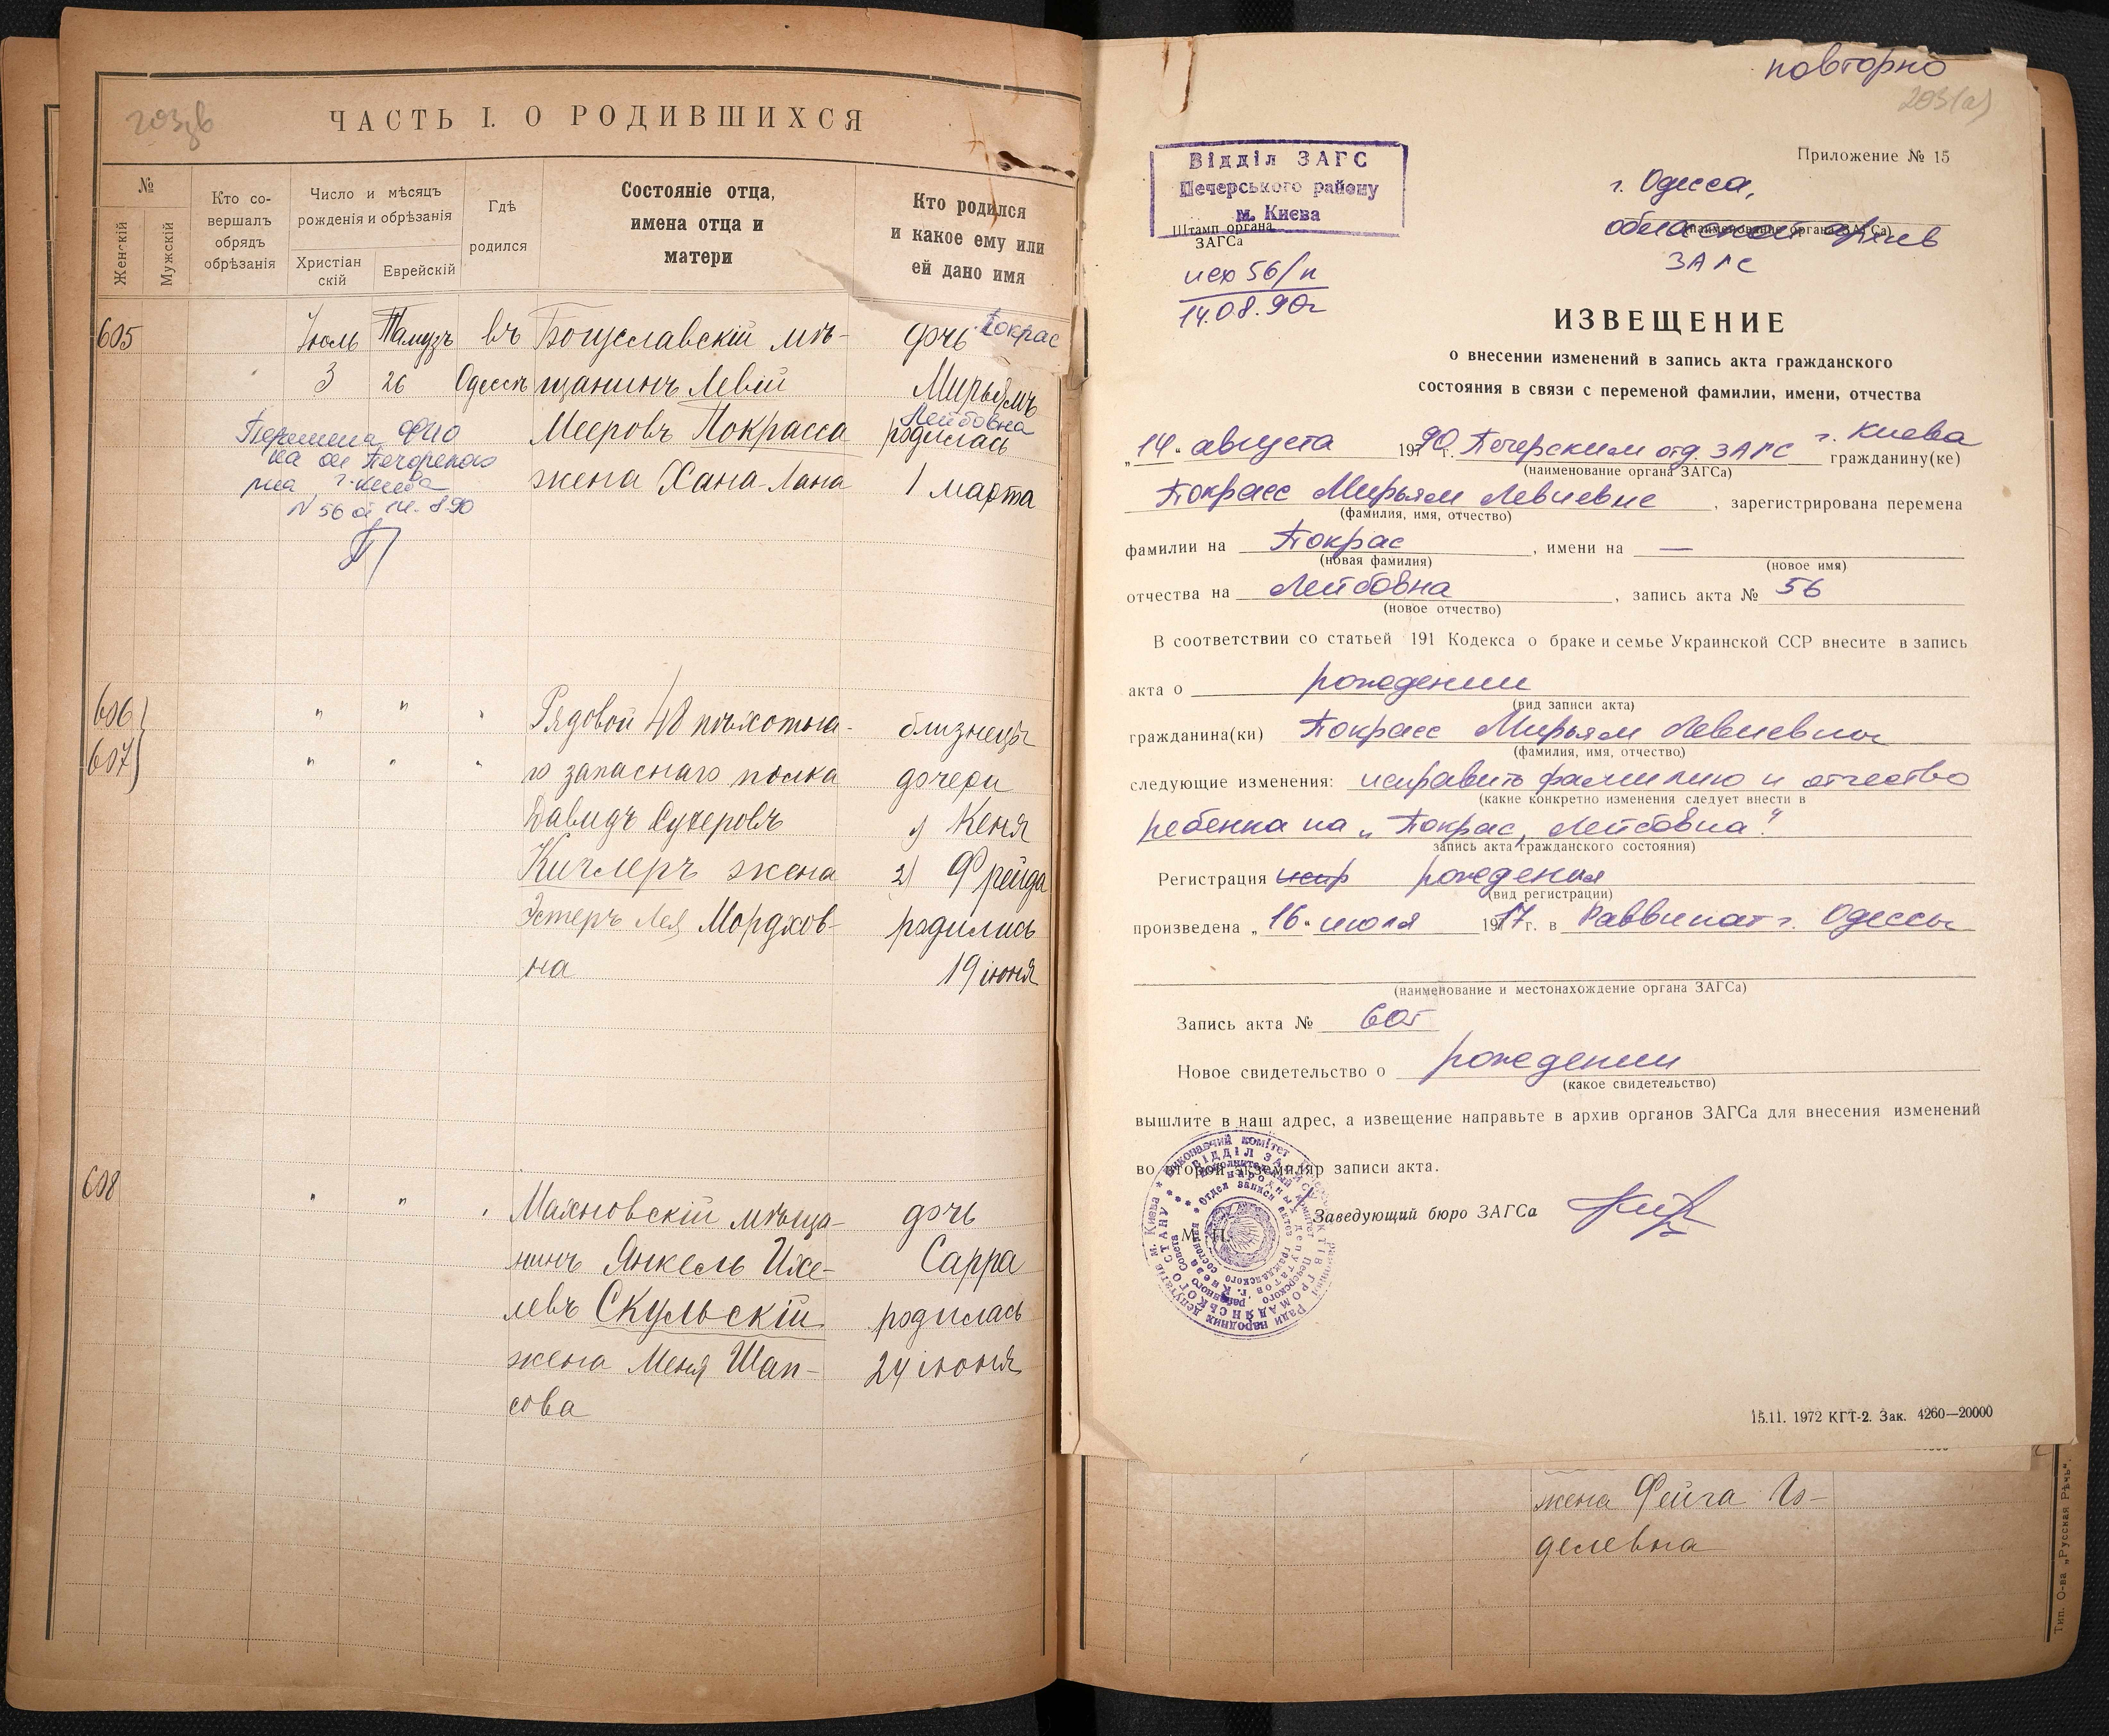 203 зв
ЧАСТЬ I. О РОДИВШИХСЯ
№
Женскій
Мужскій
Кто со-
вершалъ
обрядъ
обрѣзанія
Число и мѣсяцъ
рожденія и обрѣзанія
Христіан
скій
Еврейскій
Гдѣ
родился
Состояніе отца,
имена отца и
матери
Кто родился
и какое ему или
ей дано имя
605
Іюль
3
Тамузъ
26
въ
Одессѣ
Богуславскій мѣ-
щанинъ Левій
Мееровъ Покрасса
жена Хана-Лана
дочь Покрас
Мирьямъ
Лейбовна
родилась
1 марта
Перемена ФИО
на ос Печерского
р-на г. Киева
N 56 от 14.8.90
606
607
" " "
" " "
Рядовой 48 пѣхотна-
го запаснаго полка
Давидъ Сухеровъ
Кичлеръ жена
Эстеръ Лея Мордков-
на
близнецы
дочери
1) Кеня
2) Фрейда
родились
19 іюня
608
" " "
Махновскій мѣща-
нинъ Янкель Ихе-
левъ Скульскій
жена Меня Шап-
сова
дочь
Сарра
родилась
24 іюня
повторно
203(а)
Приложение № 15
Відділ ЗАГС
Печерського району
м. Києва
Штамп органа
ЗАГСа
исх 56/п
14.08.90г
г. Одесса,
областной архив
(наименование органа ЗАГСа)
ЗАГС
ИЗВЕЩЕНИЕ
о внесении изменений в запись акта гражданского
состояния в связи с переменой фамилии, имени, отчества
„14“ августа 1990 г. Печерским отд. ЗАГС г. Киева гражданину(ке)
(наименование органа ЗАГСа)
Покрасс Мирьям Левиевне, зарегистрирована перемена
(фамилия, имя, отчество)
фамилии на Покрас, имени на —
(новая фамилия) (новое имя)
отчества на Лейбовна, запись акта № 56
(новое отчество)
В соответствии со статьей 191 Кодекса о браке и семье Украинской ССР внесите в запись
акта о рождении
(вид записи акта)
гражданина(ки) Покрасс Мирьям Левиевны
(фамилия, имя, отчество)
следующие изменения: исправить фамилию и отчество
(какие конкретно изменения следует внести в
ребенка на „Покрас, Лейбовна“
запись акта гражданского состояния)
Регистрация рождения
(вид регистрации)
произведена „16“ июля 1917 г. в Раввинат г. Одессы
(наименование и местонахождение органа ЗАГСа)
Запись акта № 605
Новое свидетельство о рождении
(какое свидетельство)
вышлите в наш адрес, а извещение направьте в архив органов ЗАГСа для внесения изменений
во второй экземпляр записи акта.
Заведующий бюро ЗАГСа
М. П.
15.11. 1972 КГТ-2. Зак. 4260—20000
жена Фейга Го-
делевна
Тип. О-ва „Русская Рѣчь“.